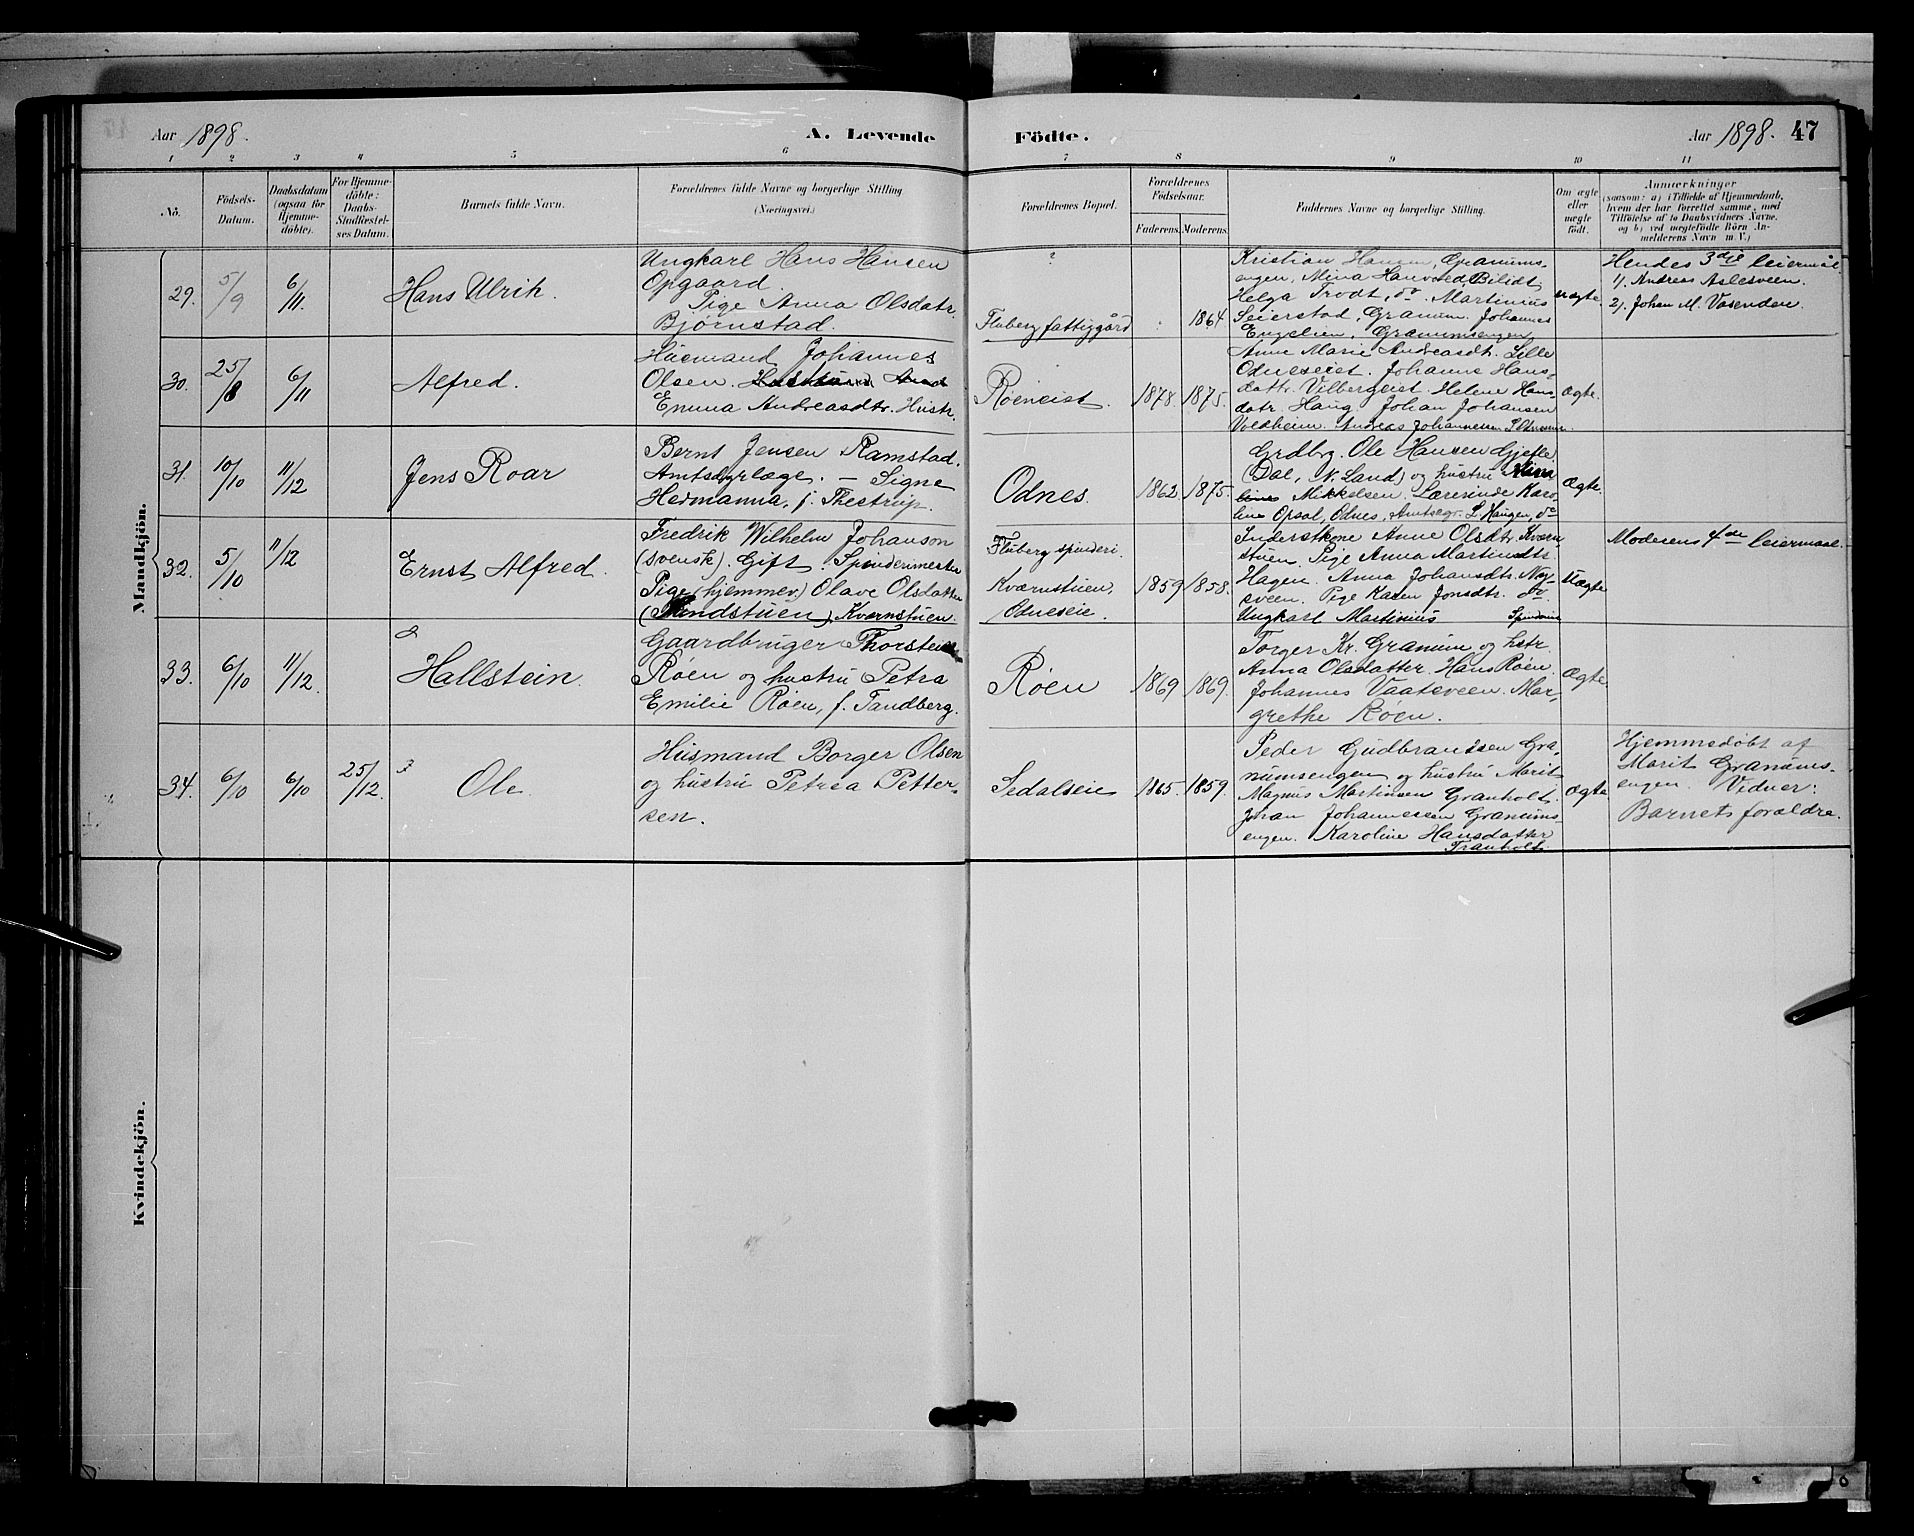 Aar 1898.
A. Levende
Födte.
Aar 1898. 47
1 2 3 4 5 6 7 8 9 10 11
No.
Födsels-
Datum.
Daabsdatum
(ogsaa for
Hjemme-
döbte).
For Hjemme-
döbte:
Daabs-
Stadfæstel-
ses Datum.
Barnets fulde Navn.
Forældrenes fulde Navne og borgerlige Stilling
(Næringsvei.)
Forældrenes Bopæl.
Forældrenes
Födselsaar.
Faderens. Moderens.
Faddernes Navne og borgerlige Stilling.
Om ægte
eller
uægte
födt.
Anmærkninger
(saasom: a) i Tilfælde af Hjemmedaab,
hvem der har forrettet samme, med
Tilföielse af to Daabsvidners Navne.
og b) ved uægtefödte Börn An-
melderens Navn m. V.)
Mandkjön.
29.
5/9
6/11.
Hans Ulrik.
Ungkarl Hans Hansen
Opgaard.
Pige Anna Olsdatr.
Bjørnstad.
?
Fluberg fattiggård
1864
Kristian Haugen, Granums-
engen, Mina Bilidt
Helga Trodt, do. Martinius
Seierstad, Granum. Johannes
Engelien, Granumsengen
uægte.
Hendes 3die leiermål
1). Andreas Aslesveen.
2). Johan M. Vasenden.
30.
25/8
6/11
Alfred.
Husmand Johannes
Olsen.
Emma Andreasdtr. Hustr.
Røeneiet.
1878. 1875.
Anne Marie Andreasdt. Lille
Odneseiet. Johanne Hans-
datr. Vilbergeiet. Helene Hans-
datr. Haug. Johan Johansen
Voldheim. Andreas Johannessen
Ægte.
31.
10/10
11/12
Jens Roar
Bernt Jensen Ramstad.
Amtsdyrlæge. — Signe
Hermanna, f. Thestrup.
Odnes.
1862. 1875.
Grdbrg. Ole Hansen Gjefle
(Dal, N. Land) og hustru
Mikkelsen. Lærerinde Karo-
line Opsal, Odnes, Amtsagr. L. Haugen, do
Ægte.
32.
5/10
11/12
Ernst Alfred.
Fredrik Wilhelm Johanson
(svensk). Gift. Spinderimester
Pige (hjemmev.) Olave Olsdatter
(Sandstuen) Kværnstuen.
Fluberg spinderi.
Kværnstuen,
Odneseie.
1859 1858.
Inderstkone Anne Olsdtr. Kværn-
stuen. Pige Anna Martinsdtr.
Hagen. Anna Johansdtr. Ny-
sveen. Pige Karen Jonsdtr. do.
Ungkarl Martinius
Uægte
Moderens 4de leiermaal.
33.
6/10
11/12.
Hallstein.
Gaardbruger Thorstein
Røen og hustru Petra
Emilie Røen, f. Tandberg.
Røen
1869 1869.
Torger Kr. Granum og hstr.
Anna Olsdatter. Hans Røen.
Johannes Vaatsveen. Mar-
grethe Røen.
Ægte.
34.
6/10
6/10
25/12.
3
Ole.
Husmand Borger Olsen
og hustru Petrea Petter-
sen.
Sedalseie
1865. 1859.
Peder Gudbrandsen Gra-
numsengen og hustru Marit
Magnus Martinsen Granholt.
Johan Johannessen Granums-
engen. Karoline Hansdatter
Tranholt.
Ægte
Hjemmedøbt af
Marit Granums-
engen. Vidner:
Barnets forældre.
Kvindekjön.